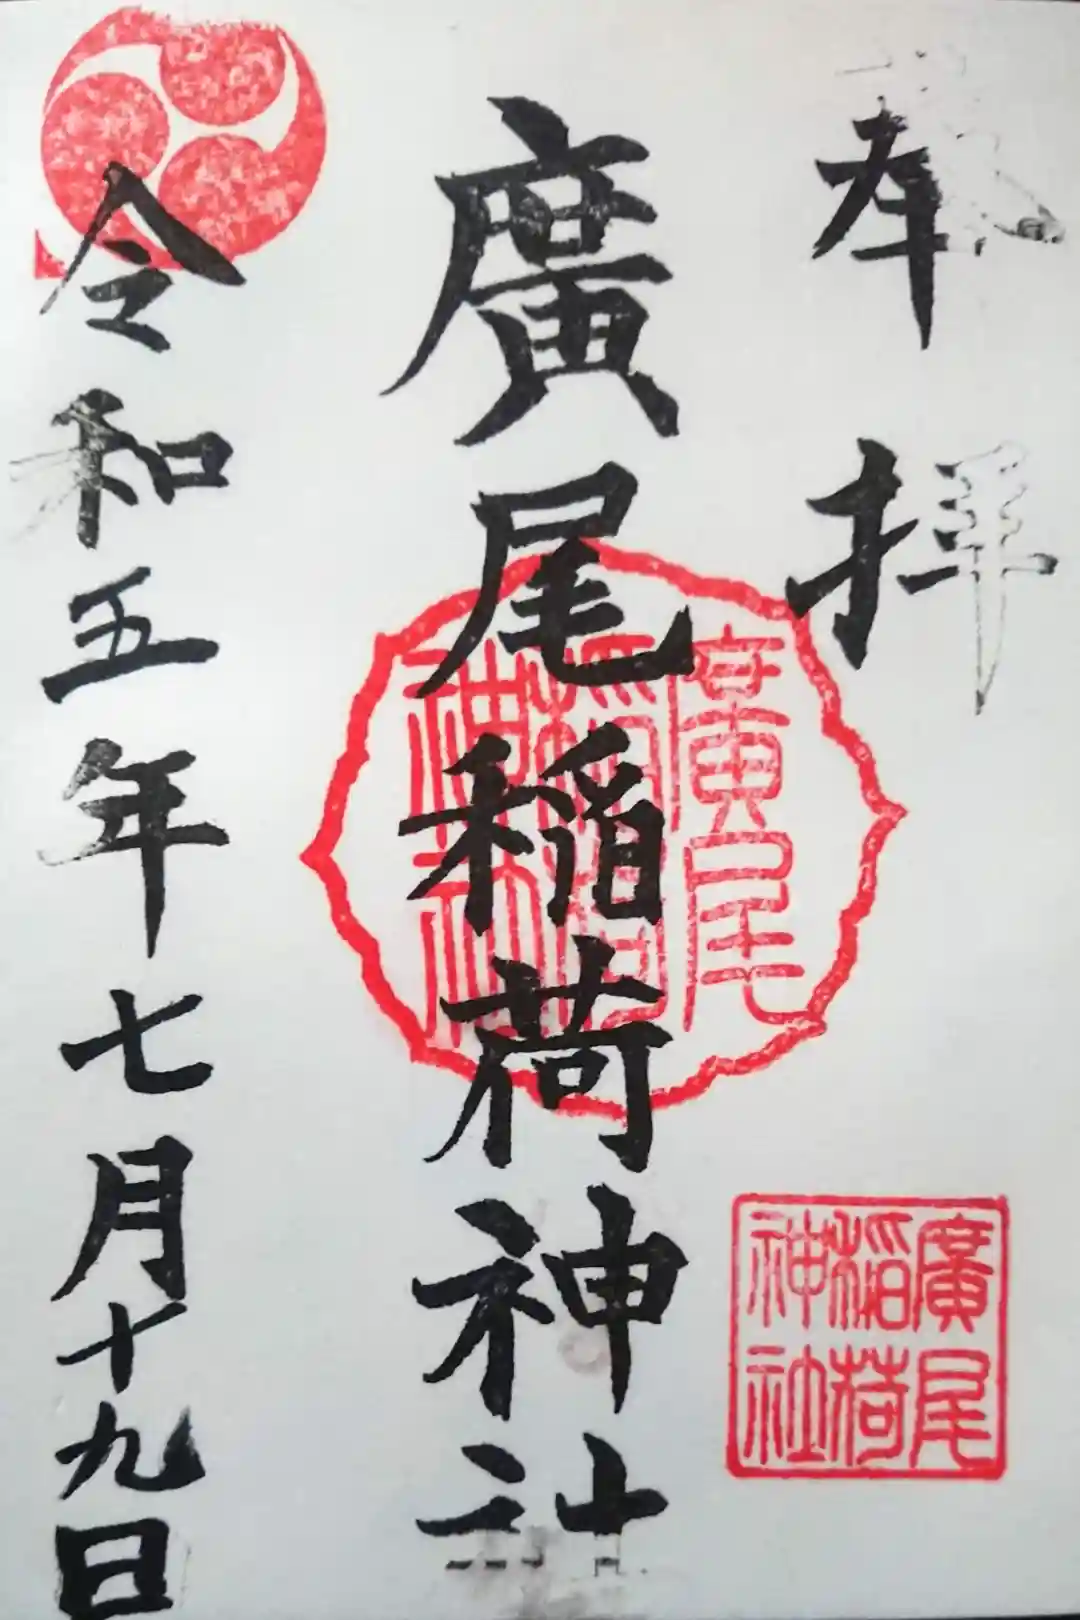 奉拝
廣尾稲荷神社
令和五年七月十九日
廣尾稲荷神社
廣尾稲荷神社